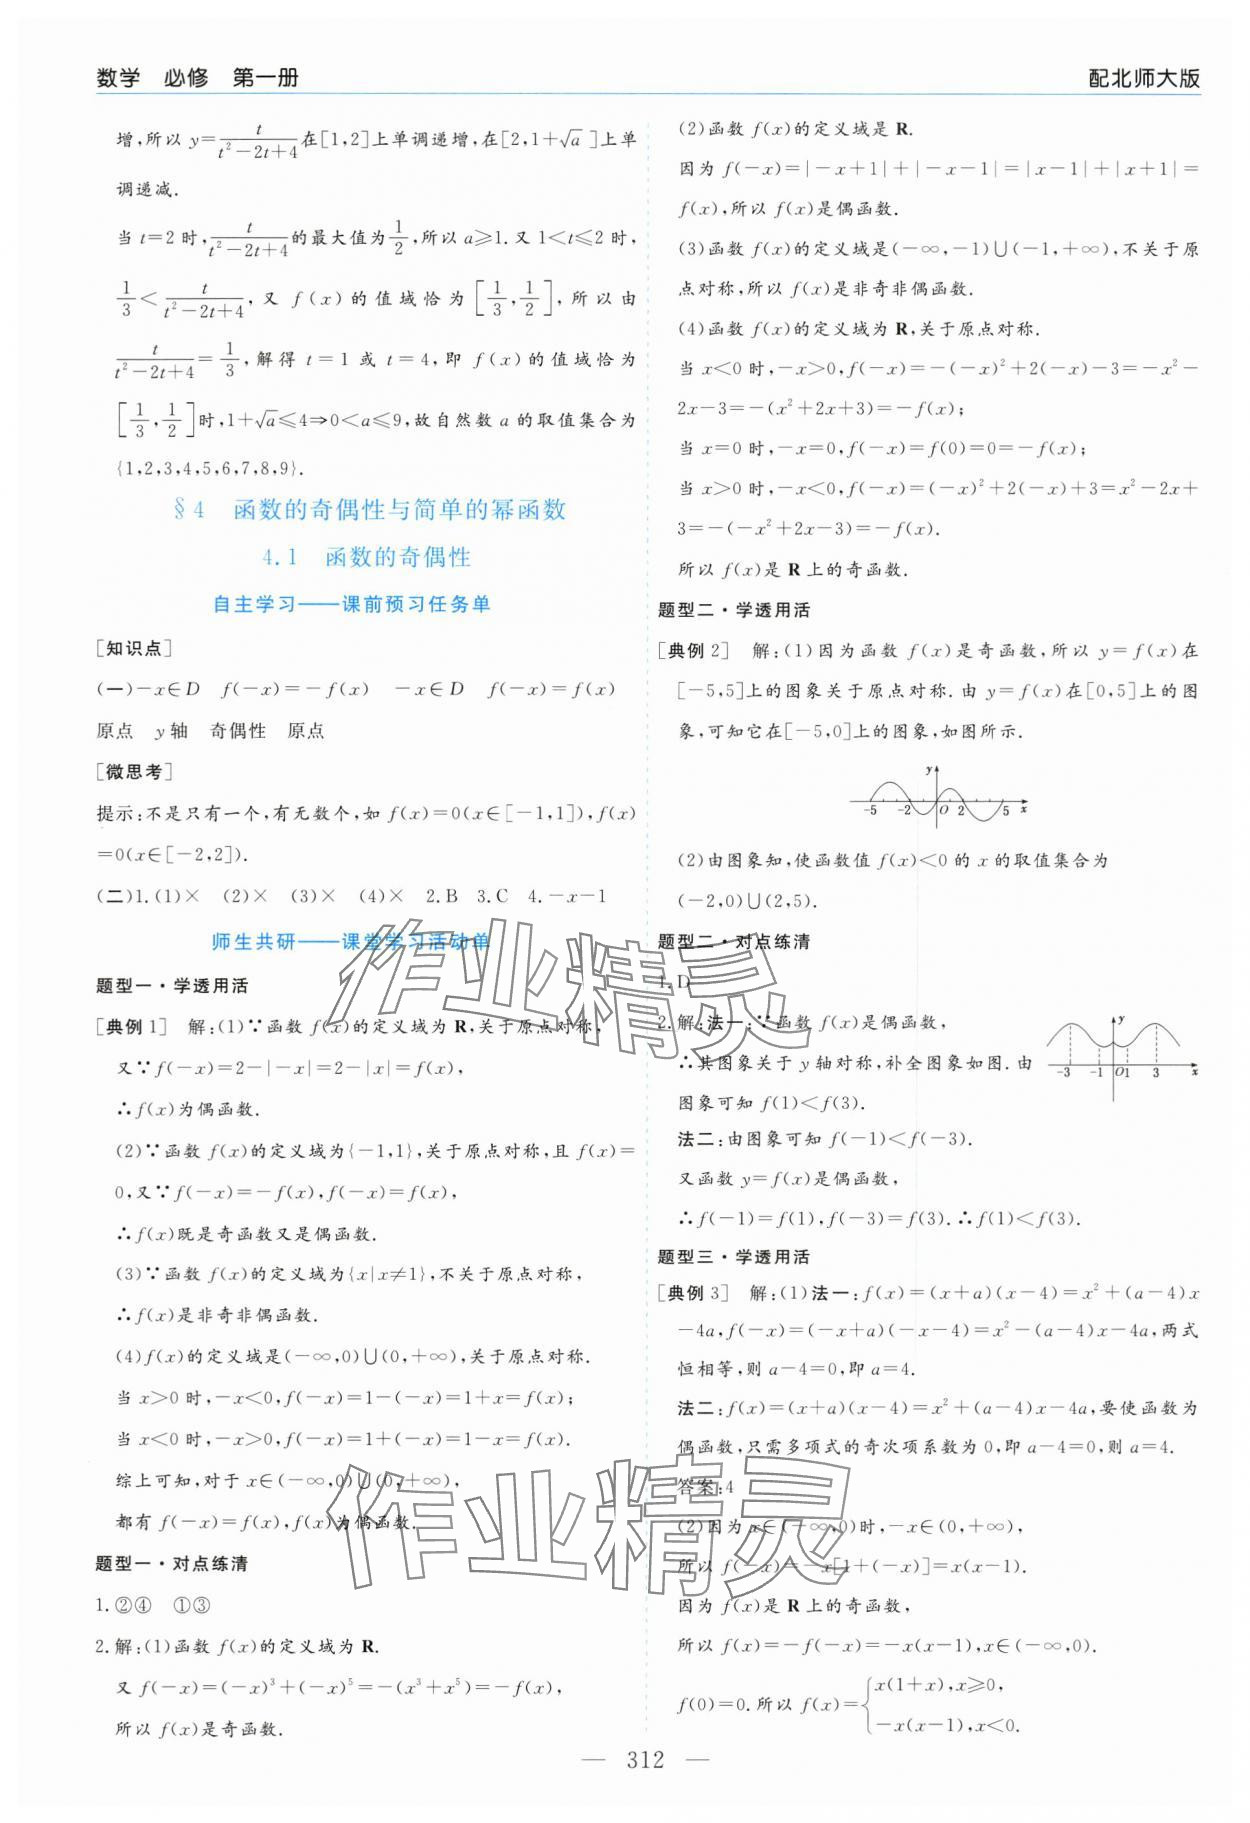 数学 必修 第一册
配北师大版
增,所以 y=t/(t²-2t+4)在[1,2]上单调递增,在[2,1+√a]上单
调递减.
当 t=2 时,t/(t²-2t+4)的最大值为1/2,所以 a≥1.又 1<t≤2 时,
1/3<t/(t²-2t+4),又 f(x)的值域恰为[1/3,1/2],所以由
t/(t²-2t+4)=1/3,解得 t=1 或 t=4,即 f(x)的值域恰为
[1/3,1/2]时,1+√a≤4⇒0<a≤9,故自然数 a 的取值集合为
{1,2,3,4,5,6,7,8,9}.
§4 函数的奇偶性与简单的幂函数
4.1 函数的奇偶性
自主学习——课前预习任务单
[知识点]
(一)-x∈D f(-x)=-f(x) -x∈D f(-x)=f(x)
原点 y轴 奇偶性 原点
[微思考]
提示:不是只有一个,有无数个,如 f(x)=0(x∈[-1,1]),f(x)
=0(x∈[-2,2]).
(二)1.(1)× (2)× (3)× (4)× 2.B 3.C 4.-x-1
师生共研——课堂学习活动单
题型一·学透用活
[典例1] 解:(1)∵函数 f(x)的定义域为 R,关于原点对称,
又∵f(-x)=2-|-x|=2-|x|=f(x),
∴f(x)为偶函数.
(2)∵函数 f(x)的定义域为{-1,1},关于原点对称,且 f(x)=
0,又∵f(-x)=-f(x),f(-x)=f(x),
∴f(x)既是奇函数又是偶函数.
(3)∵函数 f(x)的定义域为{x|x≠1},不关于原点对称,
∴f(x)是非奇非偶函数.
(4)f(x)的定义域是(-∞,0)∪(0,+∞),关于原点对称.
当 x>0 时,-x<0,f(-x)=1-(-x)=1+x=f(x);
当 x<0 时,-x>0,f(-x)=1+(-x)=1-x=f(x).
综上可知,对于 x∈(-∞,0)∪(0,+∞),
都有 f(-x)=f(x),f(x)为偶函数.
题型一·对点练清
1.②④ ①③
2.解:(1)函数 f(x)的定义域为 R.
又 f(-x)=(-x)³+(-x)⁵=-(x³+x⁵)=-f(x),
所以 f(x)是奇函数.
(2)函数 f(x)的定义域是 R.
因为 f(-x)=|-x+1|+|-x-1|=|x-1|+|x+1|=
f(x),所以 f(x)是偶函数.
(3)函数 f(x)的定义域是(-∞,-1)∪(-1,+∞),不关于原
点对称,所以 f(x)是非奇非偶函数.
(4)函数 f(x)的定义域为 R,关于原点对称.
当 x<0 时,-x>0,f(-x)=-(-x)²+2(-x)-3=-x²-
2x-3=-(x²+2x+3)=-f(x);
当 x=0 时,-x=0,f(-x)=f(0)=0=-f(x);
当 x>0 时,-x<0,f(-x)=(-x)²+2(-x)+3=x²-2x+
3=-(-x²+2x-3)=-f(x).
所以 f(x)是 R 上的奇函数.
题型二·学透用活
[典例2] 解:(1)因为函数 f(x)是奇函数,所以 y=f(x)在
[-5,5]上的图象关于原点对称.由 y=f(x)在[0,5]上的图
象,可知它在[-5,0]上的图象,如图所示.
y
-5 -2 O 2 5 x
(2)由图象知,使函数值 f(x)<0 的 x 的取值集合为
(-2,0)∪(2,5).
题型二·对点练清
1.D
2.解:法一:∵函数 f(x)是偶函数,
∴其图象关于 y 轴对称,补全图象如图.由
图象可知 f(1)<f(3).
y
-3 -1 O1 3 x
法二:由图象可知 f(-1)<f(-3).
又函数 y=f(x)是偶函数,
∴f(-1)=f(1),f(-3)=f(3).∴f(1)<f(3).
题型三·学透用活
[典例3] 解:(1)法一:f(x)=(x+a)(x-4)=x²+(a-4)x
-4a,f(-x)=(-x+a)(-x-4)=x²-(a-4)x-4a,两式
恒相等,则 a-4=0,即 a=4.
法二:f(x)=(x+a)(x-4)=x²+(a-4)x-4a,要使函数为
偶函数,只需多项式的奇次项系数为 0,即 a-4=0,则 a=4.
答案:4
(2)因为 x∈(-∞,0)时,-x∈(0,+∞),
所以 f(-x)=-x[1+(-x)]=x(x-1).
因为 f(x)是 R 上的奇函数,
所以 f(x)=-f(-x)=-x(x-1),x∈(-∞,0).
f(0)=0.所以 f(x)={x(1+x),x≥0,
-x(x-1),x<0.
— 312 —
作业精灵
作业精灵